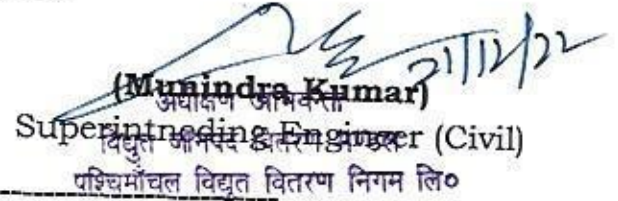 21/12/22
(Munindra Kumar)
अधीक्षण अभियन्ता
Superintneding Engineer (Civil)
विद्युत जनपद वितरण मण्डल
पश्चिमाँचल विद्युत वितरण निगम लि०